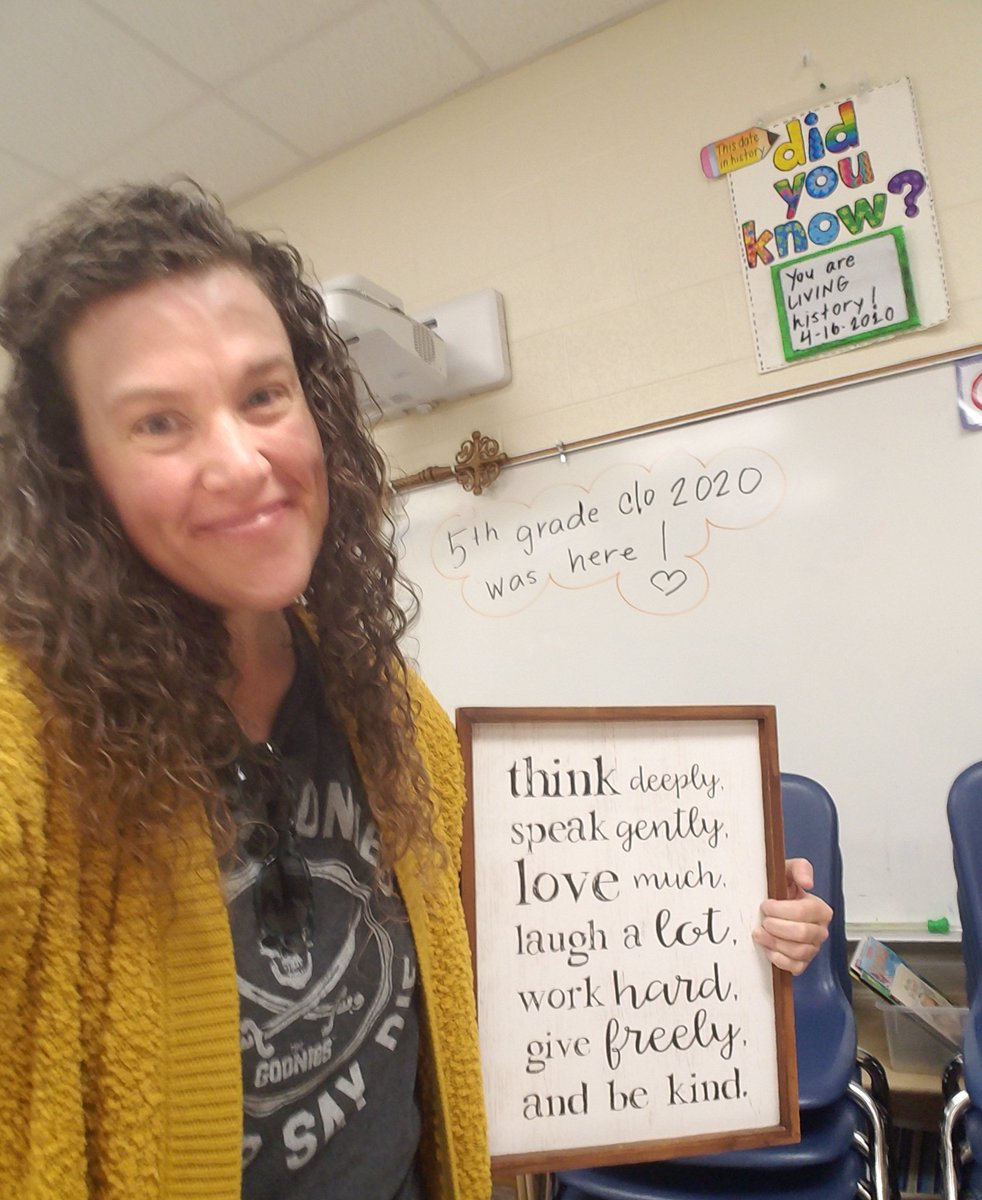 This date
in history
did
you
know?
You are
LIVING
history!
4-16-2020
5th grade c/o 2020
was here!
think deeply.
speak gently.
love much.
laugh a lot.
work hard.
give freely.
and be kind.
GOONIES
SAY
DIE